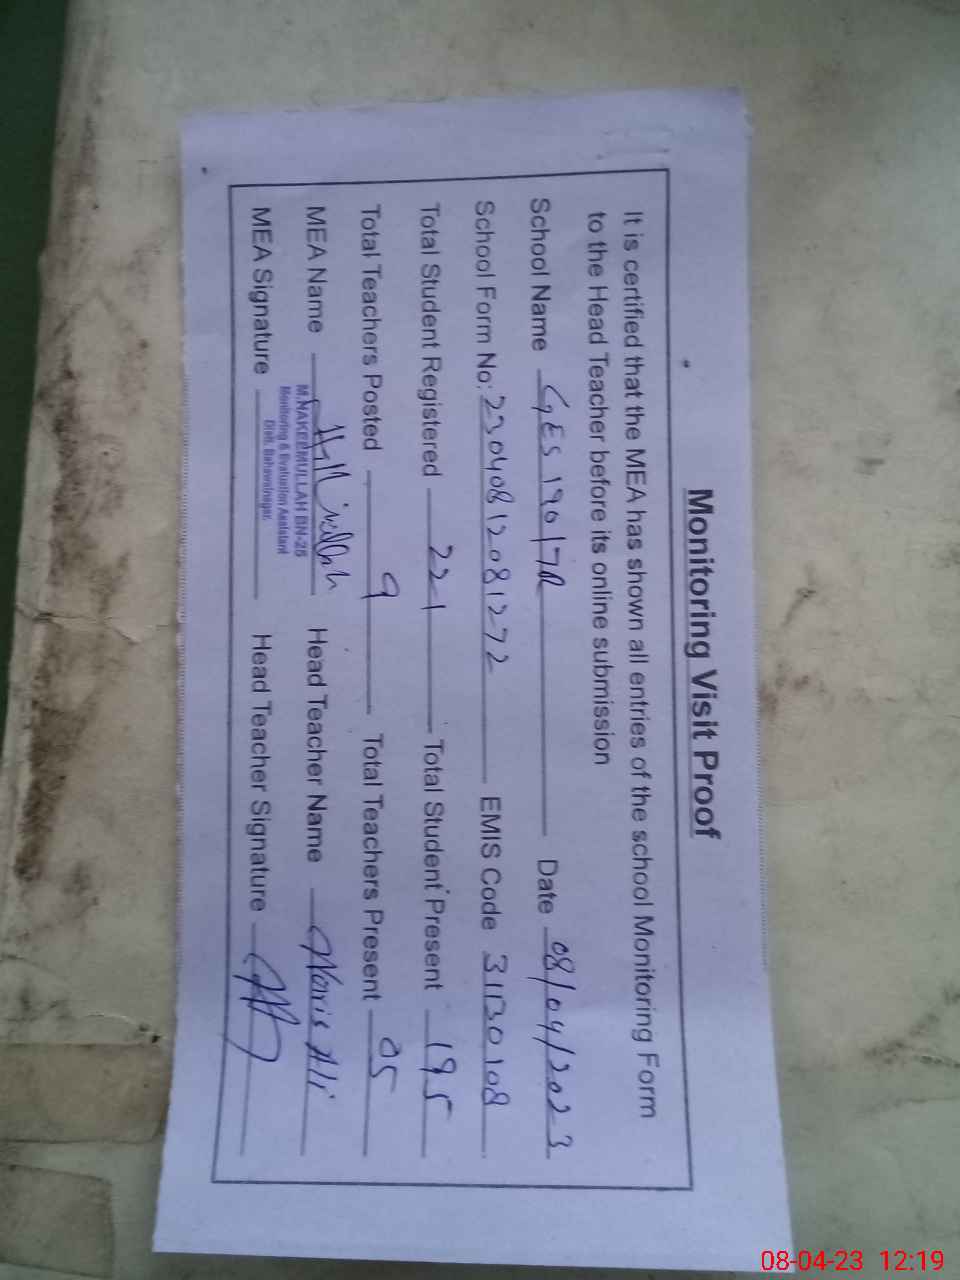 Monitoring Visit Proof
It is certified that the MEA has shown all entries of the school Monitoring Form
to the Head Teacher before its online submission
School Name GES 190/7R Date 08/04/2023
School Form No: 23040812081272 EMIS Code 31130108
Total Student Registered 221 Total Student Present 195
Total Teachers Posted 9 Total Teachers Present 05
MEA Name Head Teacher Name Haris Ali
M.HAKEEMULLAH BN-25
Monitoring & Evaluation Assistant
Distt. Bahawalnagar.
MEA Signature Head Teacher Signature
08-04-23 12:19